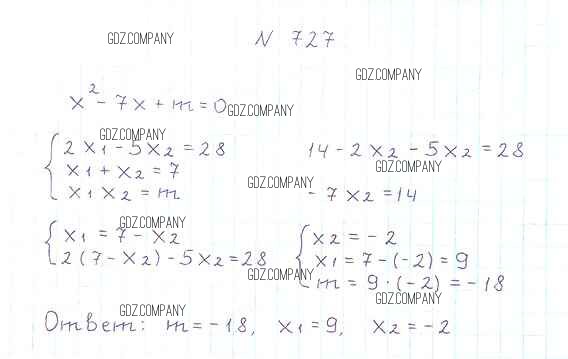 GDZ.COMPANY
N 727
GDZ.COMPANY
x² - 7x + m = 0
GDZ.COMPANY
GDZ.COMPANY
2x₁ - 5x₂ = 28
x₁ + x₂ = 7
x₁x₂ = m
14 - 2x₂ - 5x₂ = 28
GDZ.COMPANY
GDZ.COMPANY
- 7x₂ = 14
GDZ.COMPANY
x₁ = 7 - x₂
2(7 - x₂) - 5x₂ = 28
x₂ = -2
x₁ = 7 - (-2) = 9
GDZ.COMPANY
m = 9 · (-2) = -18
GDZ.COMPANY
GDZ.COMPANY
Ответ: m = -18, x₁ = 9, x₂ = -2